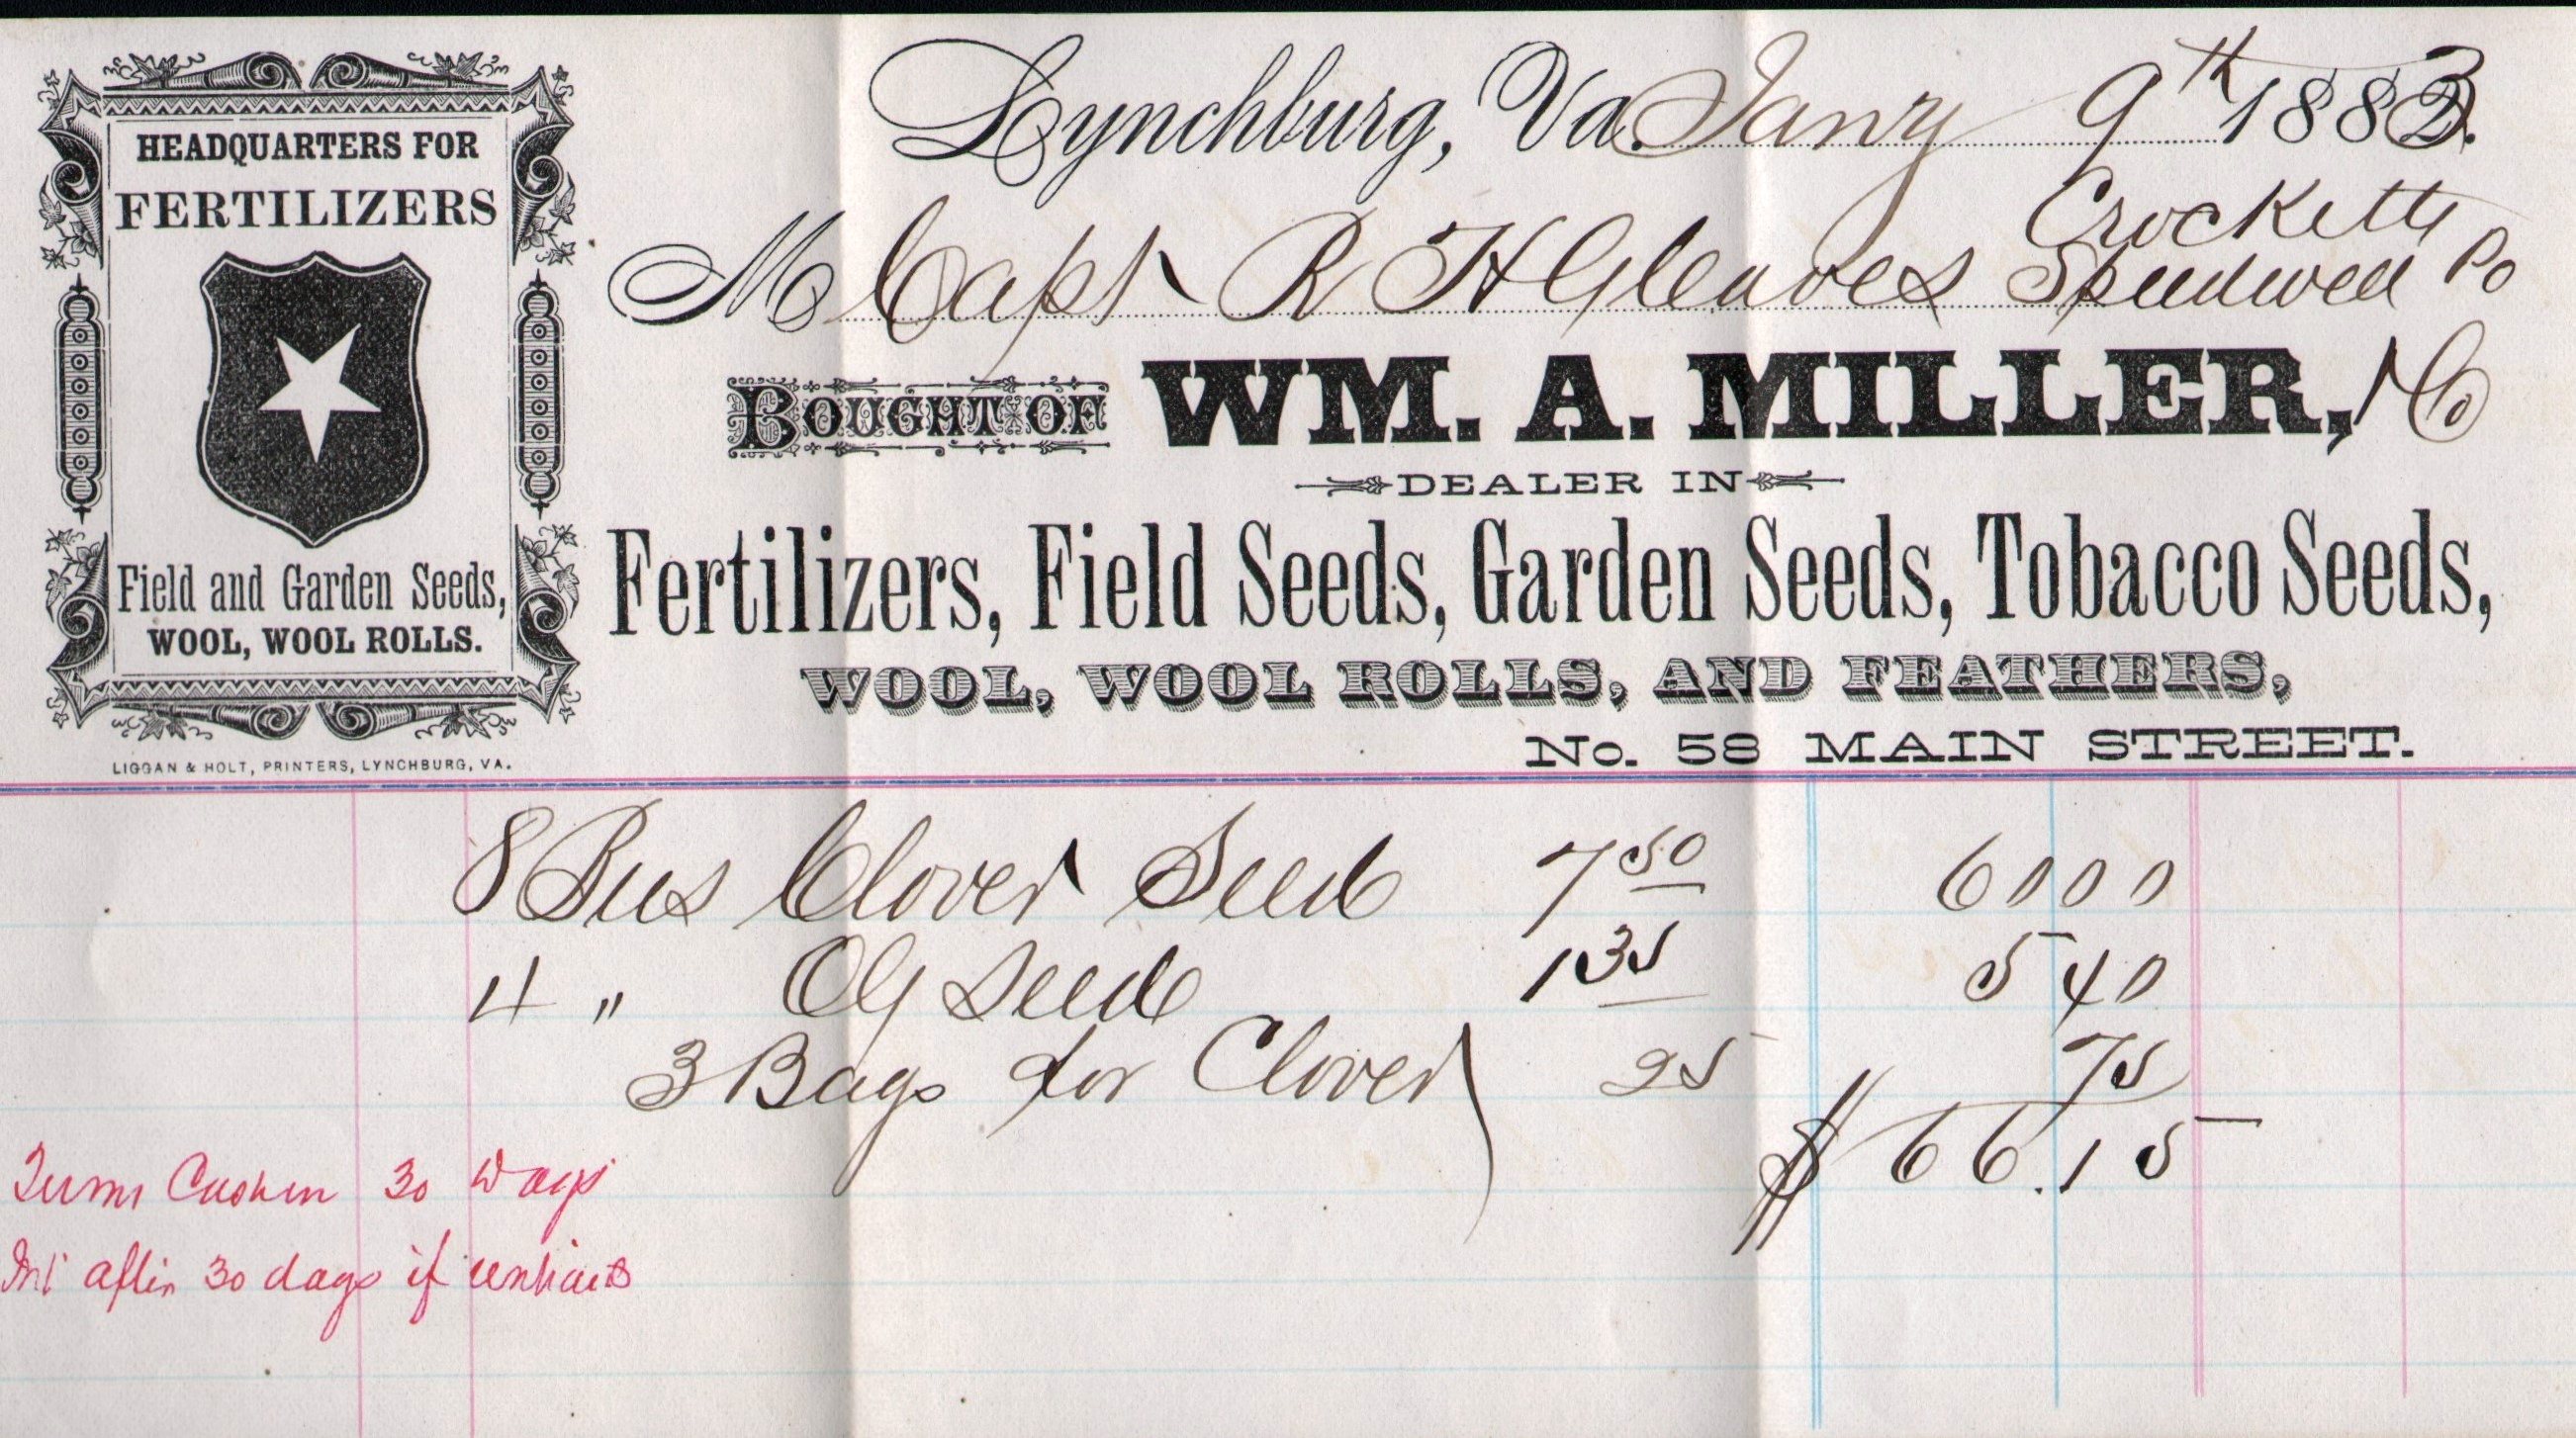 HEADQUARTERS FOR
FERTILIZERS
Field and Garden Seeds,
WOOL, WOOL ROLLS.
LIGGAN & HOLT, PRINTERS, LYNCHBURG, VA.
Lynchburg, Va. Jany 9th 1883.
Crocketts
M Capt R H Gleaves Speedwell Po
BOUGHT OF WM. A. MILLER, & Co
DEALER IN
Fertilizers, Field Seeds, Garden Seeds, Tobacco Seeds,
WOOL, WOOL ROLLS, AND FEATHERS,
No. 58 MAIN STREET.
8 Bus Clover Seed 7 50 60 00
4 " OG Seed 1 35 5 40
3 Bags for Clover 25 75
$ 66.15
Terms Cash in 30 Days
Int after 30 days if unpaid